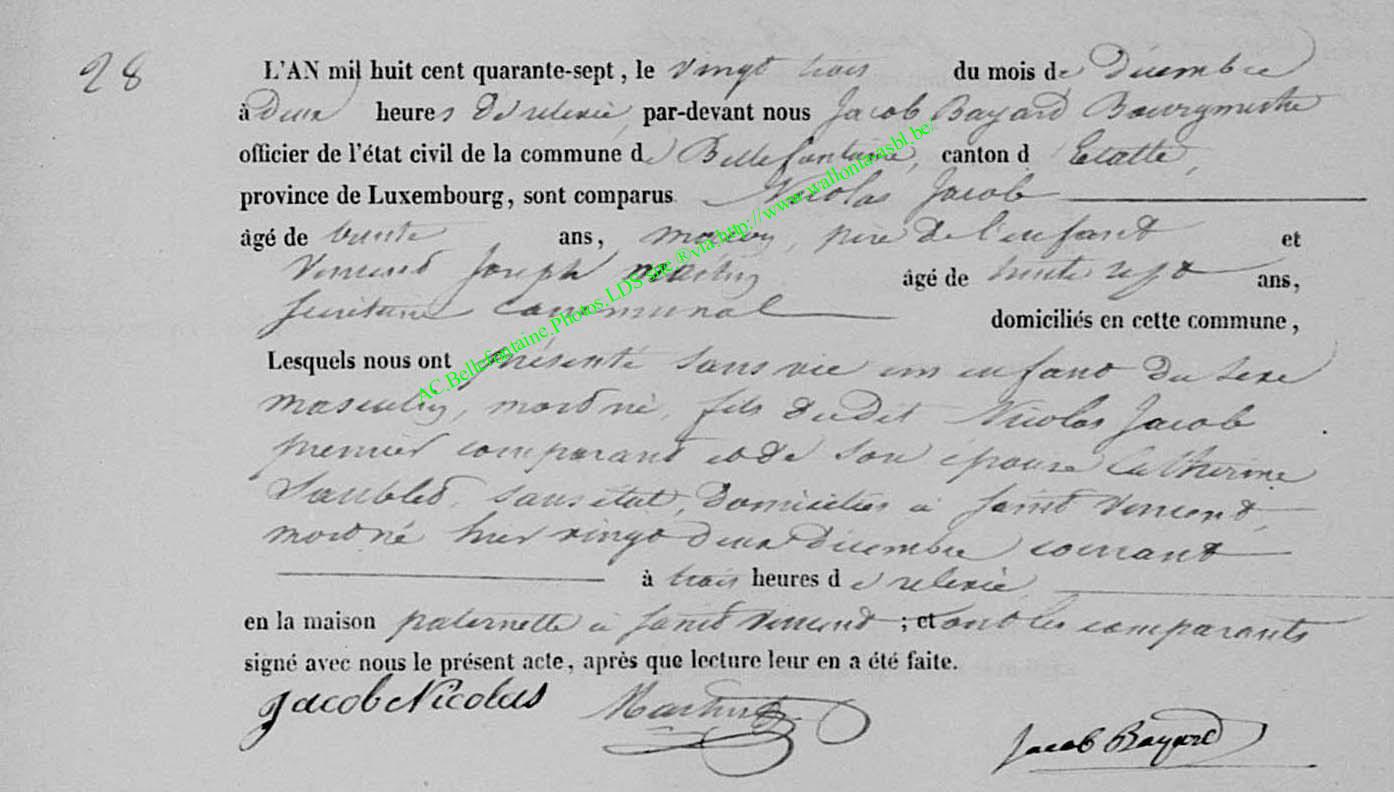 28
L'AN mil huit cent quarante-sept, le vingt trois du mois de Décembre
à deux heures de relevée, par-devant nous Jacob Bayard Bourgmestre
officier de l'état civil de la commune de Bellefontaine, canton d' Etalle,
province de Luxembourg, sont comparus Nicolas Jacob
âgé de trente ans, maçon, père de l'enfant et
Vincent Joseph Martin âgé de trente sept ans,
secrétaire communal domiciliés en cette commune,
Lesquels nous ont présenté sans vie un enfant du sexe
masculin, mort né, fils dudit Nicolas Jacob
premier comparant et de son épouse Catherine
sans état, domiciliés à Saint Vincent,
mort né hier vingt deux Décembre courant
à trois heures de relevée,
en la maison paternelle à Saint Vincent ; et ont les comparants
signé avec nous le présent acte, après que lecture leur en a été faite.
Jacob Nicolas Martin Jacob Bayard
AC.Bellefontaine.Photos.LDS site ®via.http://www.wallonia-asbl.be/